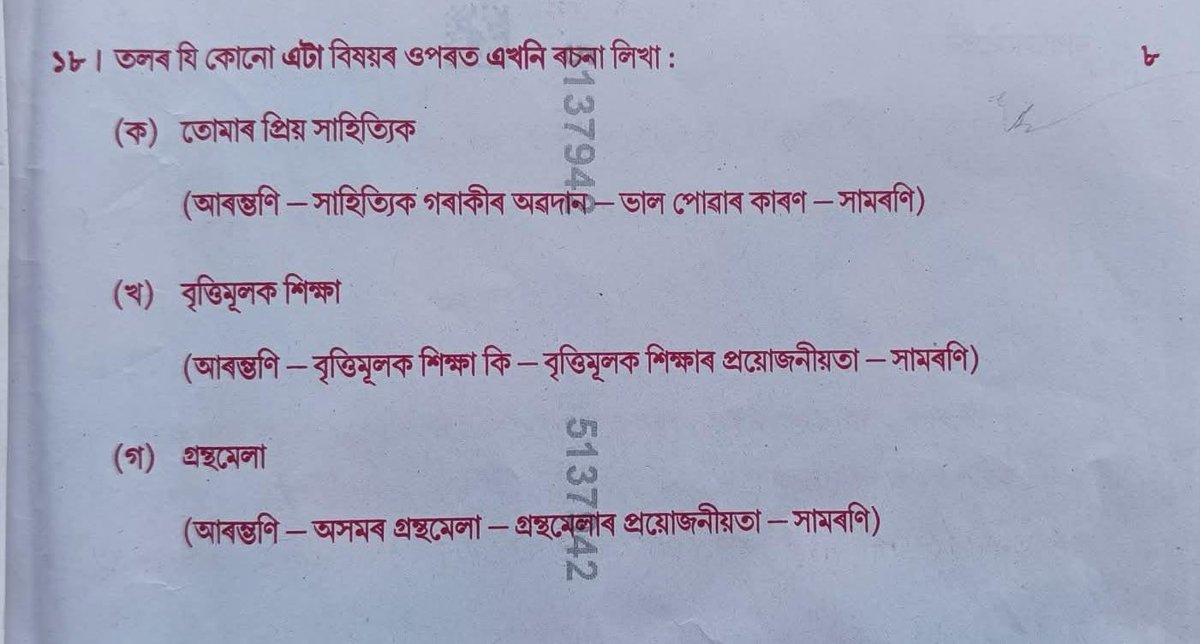 ১৮। তলৰ যি কোনো এটা বিষয়ৰ ওপৰত এখনি ৰচনা লিখা : ৮
(ক) তোমাৰ প্ৰিয় সাহিত্যিক
(আৰম্ভণি – সাহিত্যিক গৰাকীৰ অৱদান – ভাল পোৱাৰ কাৰণ – সামৰণি)
(খ) বৃত্তিমূলক শিক্ষা
(আৰম্ভণি – বৃত্তিমূলক শিক্ষা কি – বৃত্তিমূলক শিক্ষাৰ প্ৰয়োজনীয়তা – সামৰণি)
(গ) গ্ৰন্থমেলা
(আৰম্ভণি – অসমৰ গ্ৰন্থমেলা – গ্ৰন্থমেলাৰ প্ৰয়োজনীয়তা – সামৰণি)